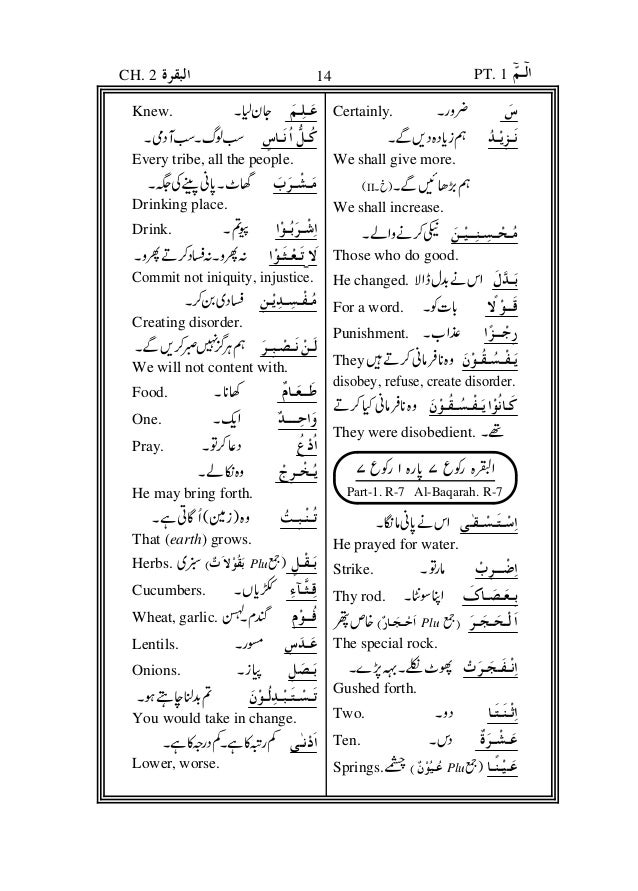 CH. 2 البقرة 14 PT. 1 الٓمّٓ
سَ ضرور۔ Certainly.
نَزِيْدُ ہم زیادہ دیں گے۔
We shall give more.
ہم بڑھائیں گے۔ (خ۔II)
We shall increase.
مُحْسِنِيْنَ نیکی کرنے والے۔
Those who do good.
بَدَّلَ اس نے بدل ڈالا He changed.
قَوْلًا بات کو۔ For a word.
رِجْزًا عذاب۔ Punishment.
يَفْسُقُوْنَ وہ نافرمانی کرتے ہیں They
disobey, refuse, create disorder.
كَانُوْا يَفْسُقُوْنَ وہ نافرمانی کیا کرتے
تھے۔ They were disobedient.
البقرہ رکوع ۷ پارہ ۱ رکوع ۷
Part-1. R-7 Al-Baqarah. R-7
اِسْتَسْقٰى اس نے پانی مانگا۔
He prayed for water.
اِضْرِبْ مار تو۔ Strike.
بِعَصَاكَ اپنا سونٹا۔ Thy rod.
اَلْحَجَرَ (جمع Plu اَحْجَارٌ) خاص پتھر
The special rock.
اِنْفَجَرَتْ پھوٹ نکلے۔ بہہ پڑے۔
Gushed forth.
اِثْنَتَا دو۔ Two.
عَشْرَةَ دس۔ Ten.
عَيْنًا (جمع Plu عُيُوْنٌ) چشمے Springs.
عَلِمَ جان لیا۔ Knew.
كُلُّ اُنَاسٍ سب لوگ۔ سب آدمی۔
Every tribe, all the people.
مَشْرَبَ گھاٹ۔ پانی پینے کی جگہ۔
Drinking place.
اِشْرَبُوْا پیو تم۔ Drink.
لَا تَعْثَوْا نہ پھرو۔ نہ فساد کرتے پھرو۔
Commit not iniquity, injustice.
مُفْسِدِيْنَ فسادی بن کر۔
Creating disorder.
لَنْ نَصْبِرَ ہم ہرگز نہیں صبر کریں گے۔
We will not content with.
طَعَامٌ کھانا۔ Food.
وَاحِدٌ ایک۔ One.
اُدْعُ دعا کر تو۔ Pray.
يُخْرِجْ وہ نکالے۔
He may bring forth.
تُنْبِتُ وہ (زمین) اُگاتی ہے۔
That (earth) grows.
بَقْلِ (جمع Plu بَقُوْلَاتٌ) سبزی Herbs.
قِثَّآءِ ککڑیاں۔ Cucumbers.
فُوْمِ گندم۔ لہسن Wheat, garlic.
عَدَسِ مسور۔ Lentils.
بَصَلِ پیاز۔ Onions.
تَسْتَبْدِلُوْنَ تم بدلنا چاہتے ہو۔
You would take in change.
اَدْنٰى کم رتبہ کا ہے۔ کم درجہ کا ہے۔
Lower, worse.